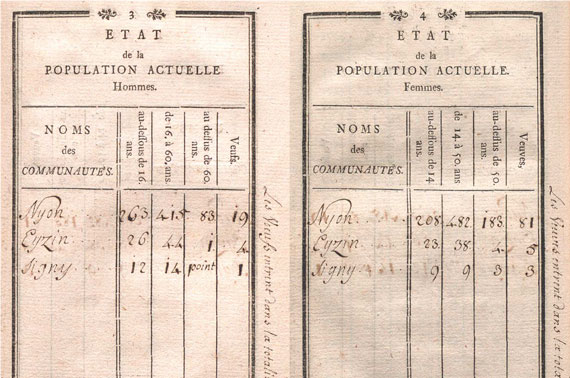 3
ETAT
de la
POPULATION ACTUELLE
Hommes.
NOMS des COMMUNAUTÉS. au-dessous de 16. ans. de 16. à 60, ans au dessus de 60. ans. Veufs,
Nyon 263 415 83 19
Eyzin 26 44 1 4
Signy 12 14 point 1
Les Veufs entrent dans la totali
4
ETAT
de la
POPULATION ACTUELLE.
Femmes.
NOMS des COMMUNAUTÉS. au-dessous de 14 ans. de 14. à 50. ans au-dessus de 50. ans. Veuves,
Nyon 208 482 183 81
Eyzin 23 38 4
Signy 9 9 3 3
Les Veuves entrent dans la total